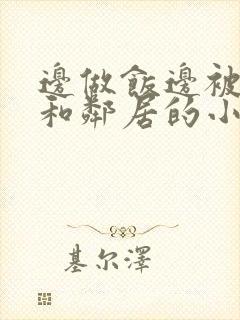 邊做飯邊被
和鄰居的小
基尔澤